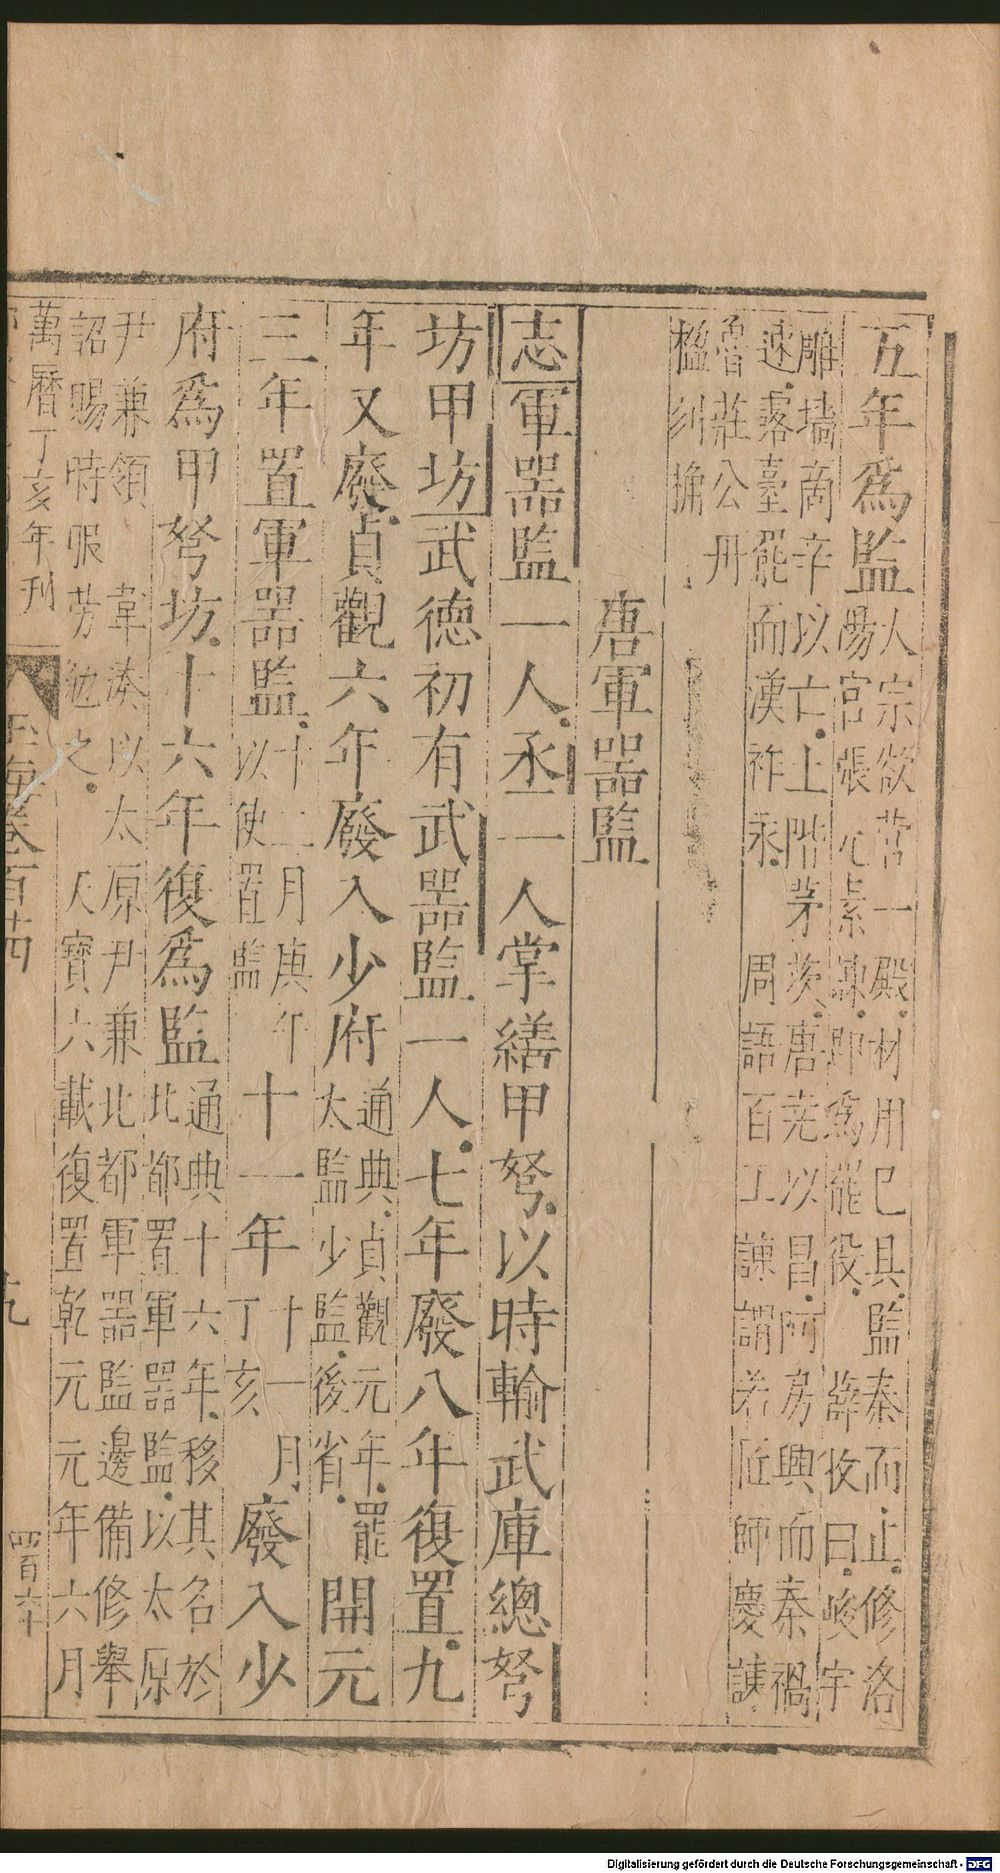 五年爲監人宗欲營一殿材用已具監秦而止修洛
陽宮張元素諫即爲罷役　薛收曰峻宇
雕墻商辛以亡土階茅茨唐堯以昌阿房興而秦禍
速露臺罷而漢祚永　周語百工諫謂若匠師慶諫
魯莊公丹
楹刻桷
唐軍器監
志軍器監一人丞一人掌繕甲弩以時輸武庫總弩
坊甲坊武德初有武器監一人七年廢八年復置九
年又廢貞觀六年廢入少府通典貞觀元年罷太監少監後省開元
三年置軍器監十二月庚午以使置監十一年十一月丁亥廢入少
府爲甲弩坊十六年復爲監通典十六年移其名於北都置軍器監以太原
尹兼領　韋湊以太原尹兼北都軍器監邊備修舉
詔賜時服勞勉之　天寶六載復置乾元元年六月
萬曆丁亥年刊
玉海卷百十四
四百六十
Digitalisierung gefördert durch die Deutsche Forschungsgemeinschaft - DFG